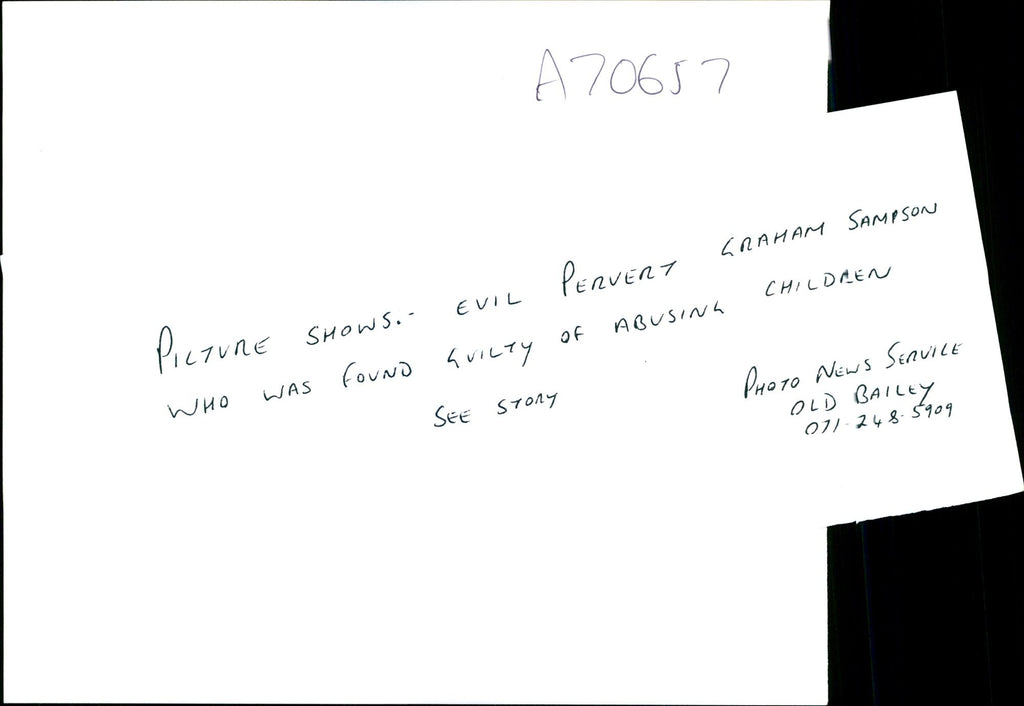 A70657
PICTURE SHOWS.- EVIL PERVERT GRAHAM SAMPSON
WHO WAS FOUND GUILTY OF ABUSING CHILDREN
SEE STORY
PHOTO NEWS SERVICE
OLD BAILEY
071-248-5909